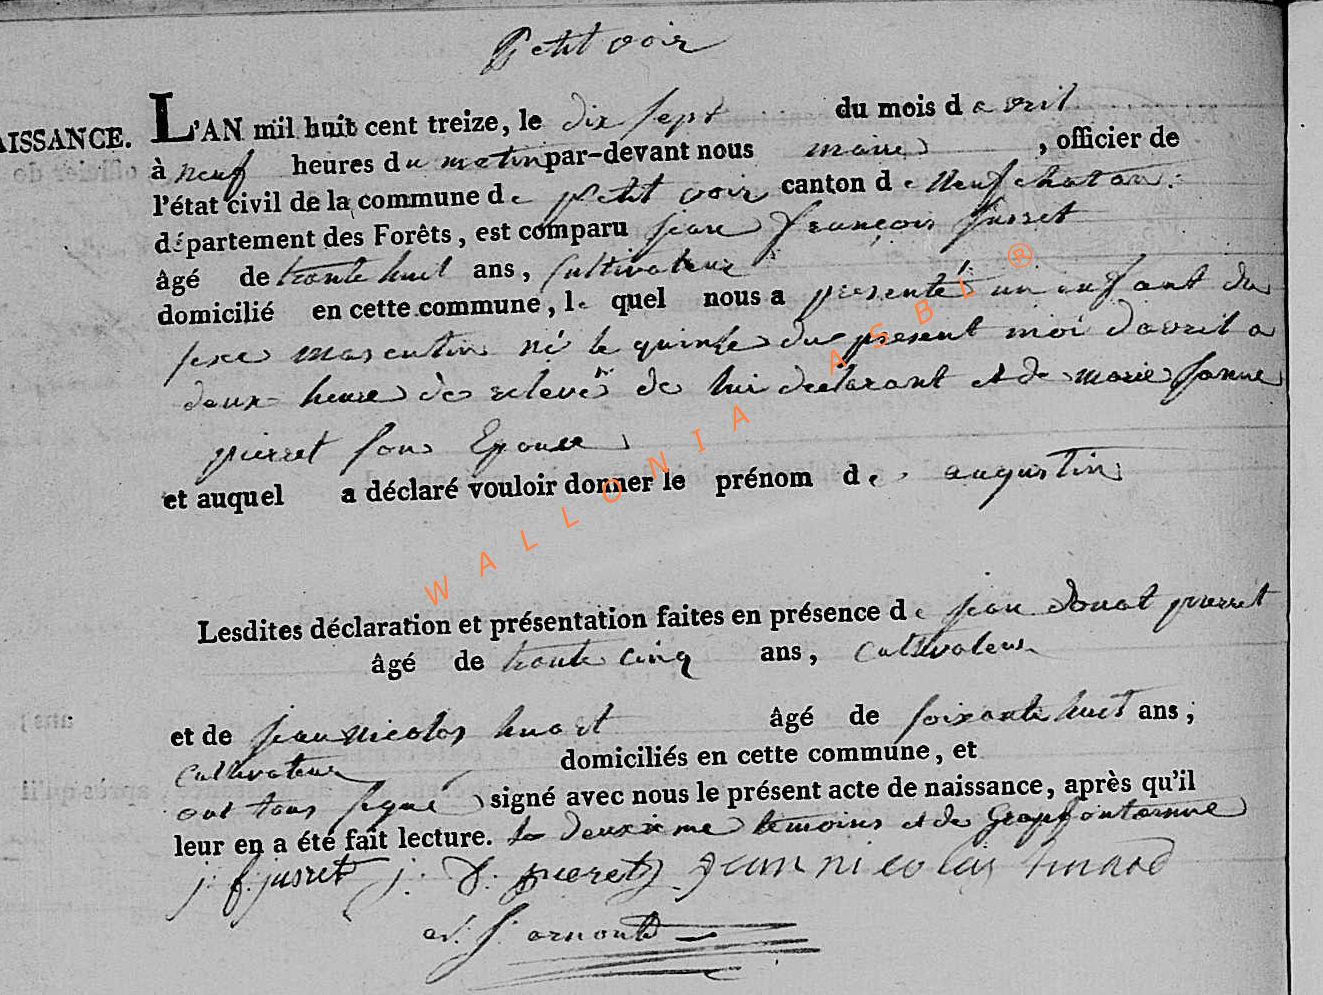 Petit voir
AISSANCE. L'AN mil huit cent treize, le dix sept du mois d avril
à neuf heures du matin par-devant nous maire, officier de
l'état civil de la commune de petit voir canton de Neufchatau.
département des Forêts, est comparu jean françois jusret
âgé de trante huit ans, Cultivateur
domicilié en cette commune, le quel nous a presenté un enfant du
sexe masculin né le quinze du present moi davril a
deux heure de relevé de lui declarant et de marie janne
pierret sons Epouse
et auquel a déclaré vouloir donner le prénom de augustin
Lesdites déclaration et présentation faites en présence de jean donat pierret
âgé de trante cinq ans, Cultivateur
et de jean Nicolas huart âgé de soixante huit ans,
Cultivateur domiciliés en cette commune, et
ont tous signé signé avec nous le présent acte de naissance, après qu'il
leur en a été fait lecture. le deuxieme temoins et de Grapfontainne
j: f: jusret j: d: pierret jean nicolas huard
arnould
WALLONIA ASBL ®